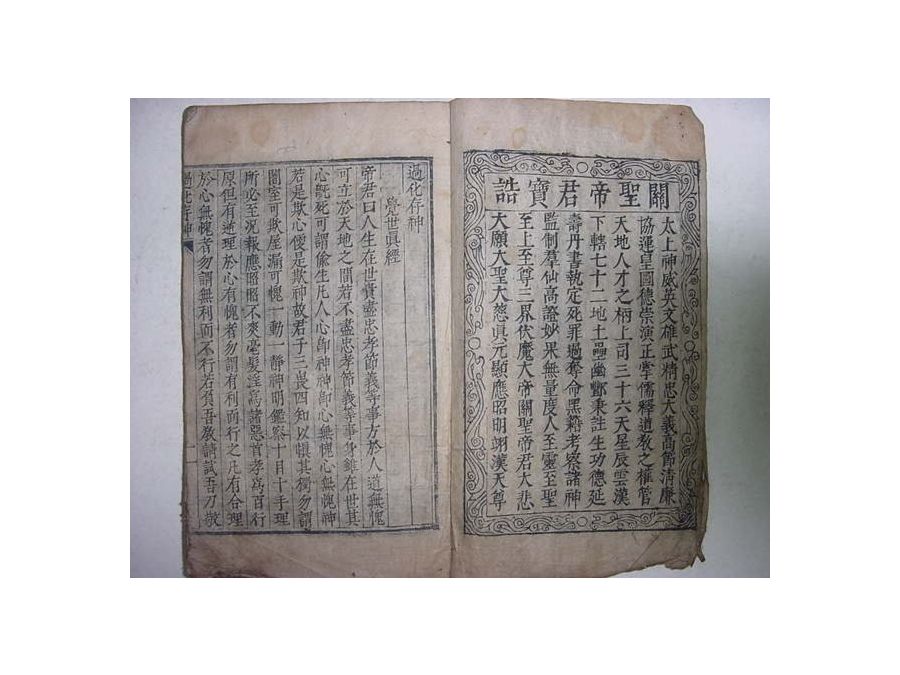 關聖帝君寶誥
太上神威英文雄武精忠大義高節清廉
協運皇圖德崇演正掌儒釋道教之權管
天地人才之柄上司三十六天星辰雲漢
下轄七十二地土壘幽酆秉註生功德延
壽丹書執定死罪過奪命黑籍考察諸神
監制羣仙高證妙果無量度人至靈至聖
至上至尊三界伏魔大帝關聖帝君大悲
大願大聖大慈眞元顯應昭明翊漢天尊
過化存神
覺世眞經
帝君曰人生在世貴盡忠孝節義等事方於人道無愧
可立於天地之間若不盡忠孝節義等事身雖在世其
心旣死可謂偷生凡人心卽神神卽心無愧心無愧神
若是欺心便是欺神故君子三畏四知以愼其獨勿謂
闇室可欺屋漏可愧一動一靜神明鑑察十目十手理
所必至况報應昭昭不爽毫髮淫爲諸惡首孝爲百行
原但有逆理於心有愧者勿謂有利而行之凡有合理
於心無愧者勿謂無利而不行若負吾敎請試吾刀敬
過化存神